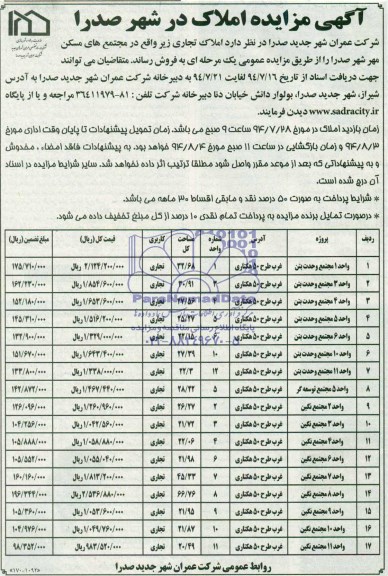 آگهی مزایده املاک در شهر صدرا
شرکت عمران شهر جدید صدرا در نظر دارد املاک تجاری زیر واقع در مجتمع های مسکن
مهر شهر صدرا را از طریق مزایده عمومی یک مرحله ای به فروش رساند. متقاضیان می توانند
جهت دریافت اسناد از تاریخ ۹۴/۷/۱۶ لغایت ۹۴/۷/۲۱ به دبیرخانه شرکت عمران شهر جدید صدرا به آدرس
شیراز، شهر جدید صدرا، بولوار دانش خیابان دنا دبیرخانه شرکت تلفن : ۸۱-۳۶۴۱۱۹۷۹ مراجعه و یا از پایگاه
www.sadracity.ir دیدن فرمایند.
زمان بازدید املاک در مورخ ۹۴/۷/۲۸ ساعت ۹ صبح می باشد. زمان تحویل پیشنهادات تا پایان وقت اداری مورخ
۹۴/۸/۳ و زمان بازگشایی در ساعت ۱۱ صبح مورخ ۹۴/۸/۴ خواهد بود. به پیشنهادات فاقد امضاء ، مخدوش
و به پیشنهاداتی که بعد از موعد مقرر واصل شود مطلقا ترتیب اثر داده نخواهد شد. سایر شرایط مزایده در اسناد
آن درج شده است.
* شرایط پرداخت به صورت ۵۰ درصد نقد و مابقی اقساط ۳۰ ماهه می باشد.
* درصورت تمایل برنده مزایده به پرداخت تمام نقدی ۱۰ درصد از کل مبلغ تخفیف داده می شود.
ردیف پروژه آدرس شماره واحد مساحت کل کاربری قیمت کل (ریال) مبلغ تضمین (ریال)
۱ واحد ۱ مجتمع وحدت بتن غرب طرح ۵۰ هکتاری ۱ ۳۴/۶۸ تجاری ۲/۱۳۴/۲۰۰/۰۰۰ ۱۷۵/۷۱۰/۰۰۰
۲ واحد ۳ مجتمع وحدت بتن غرب طرح ۵۰ هکتاری ۳ ۳۰/۹۱ تجاری ۱/۸۵۴/۶۰۰/۰۰۰ ۱۶۲/۷۳۰/۰۰۰
۳ واحد ۴ مجتمع وحدت بتن غرب طرح ۵۰ هکتاری ۴ ۲۷/۵۶ تجاری ۱/۶۵۳/۶۰۰/۰۰۰ ۱۵۲/۱۸۰/۰۰۰
۴ واحد ۵ مجتمع وحدت بتن غرب طرح ۵۰ هکتاری ۵ ۲۵/۲۷ تجاری ۱/۵۱۶/۲۰۰/۰۰۰ ۱۴۵/۳۱۰/۰۰۰
۵ واحد ۶ مجتمع وحدت بتن غرب طرح ۵۰ هکتاری ۶ ۲۲/۱۵ تجاری ۱/۳۲۹/۰۰۰/۰۰۰ ۱۳۲/۹۰۰/۰۰۰
۶ واحد ۱۰ مجتمع وحدت بتن غرب طرح ۵۰ هکتاری ۱۰ ۲۷/۳۹ تجاری ۱/۶۴۳/۴۰۰/۰۰۰ ۱۵۱/۶۷۰/۰۰۰
۷ واحد ۱۱ مجتمع وحدت بتن غرب طرح ۵۰ هکتاری ۱۲ ۲۲/۳ تجاری ۱/۳۳۸/۰۰۰/۰۰۰ ۱۳۳/۸۰۰/۰۰۰
۸ واحد ۵ مجتمع توسعه گر غرب طرح ۵۰ هکتاری ۵ ۲۸/۲۲ تجاری ۱/۴۶۷/۴۴۰/۰۰۰ ۱۴۲/۸۷۲/۰۰۰
۹ واحد ۲ مجتمع نگین غرب طرح ۵۰ هکتاری ۲ ۲۶/۲۷ تجاری ۱/۲۶۰/۹۶۰/۰۰۰ ۱۲۶/۰۹۶/۰۰۰
۱۰ واحد ۳ مجتمع نگین غرب طرح ۵۰ هکتاری ۳ ۲۱/۷۲ تجاری ۱/۰۴۲/۵۶۰/۰۰۰ ۱۰۴/۲۵۶/۰۰۰
۱۱ واحد ۴ مجتمع نگین غرب طرح ۵۰ هکتاری ۴ ۲۲/۰۶ تجاری ۱/۰۵۸/۸۸۰/۰۰۰ ۱۰۵/۸۸۸/۰۰۰
۱۲ واحد ۶ مجتمع نگین غرب طرح ۵۰ هکتاری ۶ ۲۱/۹۸ تجاری ۱/۰۵۵/۰۴۰/۰۰۰ ۱۰۵/۵۵۲/۰۰۰
۱۳ واحد ۷ مجتمع نگین غرب طرح ۵۰ هکتاری ۷ ۴۵/۳۳ تجاری ۱/۸۱۳/۲۰۰/۰۰۰ ۱۶۰/۱۶۰/۰۰۰
۱۴ واحد ۸ مجتمع نگین غرب طرح ۵۰ هکتاری ۸ ۶۶/۷۶ تجاری ۲/۵۳۶/۸۸۰/۰۰۰ ۱۹۶/۳۴۴/۰۰۰
۱۵ واحد ۹ مجتمع نگین غرب طرح ۵۰ هکتاری ۹ ۲۱/۹۵ تجاری ۱/۰۵۳/۶۰۰/۰۰۰ ۱۰۵/۳۶۰/۰۰۰
۱۶ واحد ۱۰ مجتمع نگین غرب طرح ۵۰ هکتاری ۱۰ ۲۱/۸۷ تجاری ۱/۰۴۹/۷۶۰/۰۰۰ ۱۰۴/۹۷۶/۰۰۰
۱۷ واحد ۱۱ مجتمع نگین غرب طرح ۵۰ هکتاری ۱۱ ۲۰/۴۹ تجاری ۹۸۳/۵۲۰/۰۰۰ ۹۸/۳۵۲/۰۰۰
روابط عمومی شرکت عمران شهر جدید صدرا